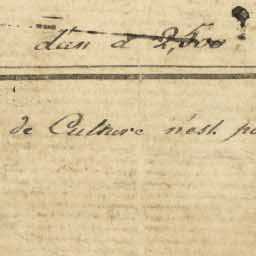 d'un à 2,500
de Culture n'est pa